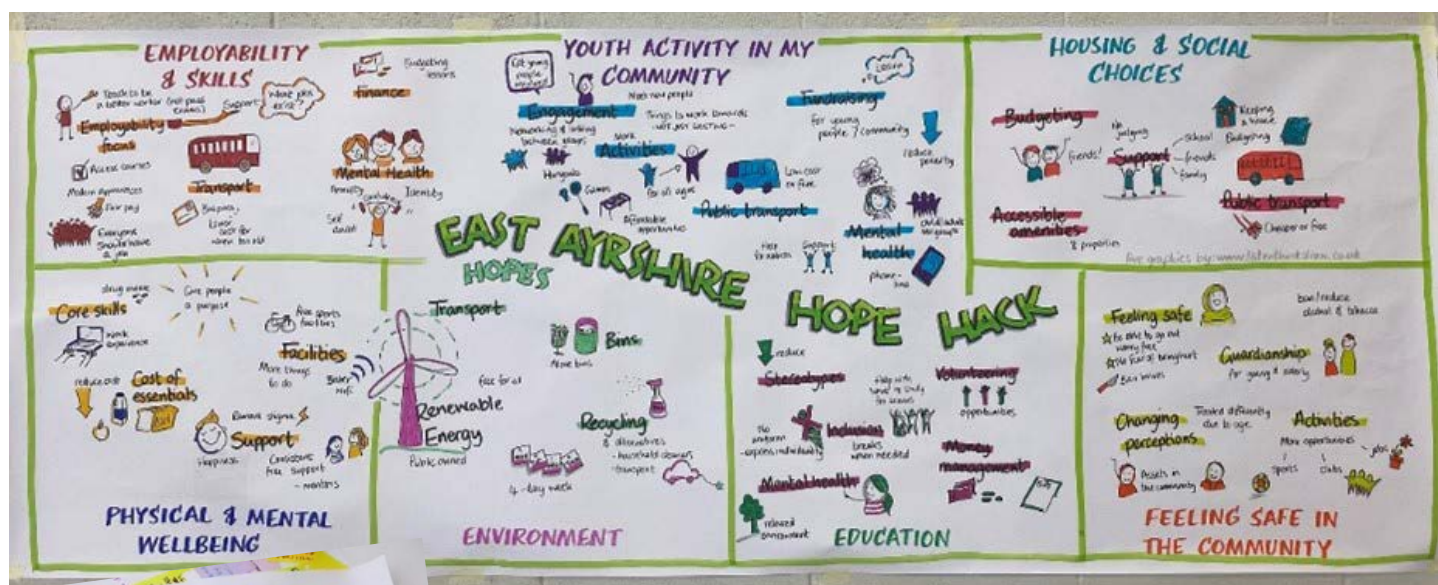 EMPLOYABILITY
& SKILLS
Teach to be
a better worker (not pass
exams)
Support
What jobs
exist?
Employability
focus
Access courses
Modern apprentices
Fair pay
Everyone
should have
a job
Transport
Bus pass
Lower
cost for
when too old
Budgeting
lessons
Finance
Mental Health
Anxiety
Confidence
Identity
Self
doubt
YOUTH ACTIVITY IN MY
COMMUNITY
Get young
people
involved
Engagement
Meet new people
Networking & linking
between
Hangouts
Things to work towards
- not just existing -
More
Activities
for all ages
Games
Affordable
opportunities
Learn
Fundraising
for young
people / community
reduce
poverty
Low cost
or free
Public transport
Mental
health
Help
Support
phone-
line
HOUSING & SOCIAL
CHOICES
Budgeting
friends!
No
judging
Support
school
friends
family
Keeping
a house
Budgeting
Public transport
Cheaper or free
Accessible
amenities
& properties
live graphics by: www.listenthinkdraw.co.uk
EAST AYRSHIRE
HOPE HACK
HOPES
Core skills
Give people
a purpose
work
experience
Free sports
facilities
Facilities
More things
to do
Better
wifi
reduce cost
Cost of
essentials
Remove stigma
Support
Happiness
Consistent
free support
- mentors
PHYSICAL & MENTAL
WELLBEING
Transport
free for all
Renewable
Energy
Public owned
Bins
More bins
Recycling
& alternatives
- household cleaners
- transport
4-day week
ENVIRONMENT
reduce
Stereotypes
Help with
Volunteering
opportunities
No
uniform
- express individuality
Inclusion
breaks
when needed
Money
management
Mental health
relaxed
environment
EDUCATION
Feeling safe
be able to go out
worry free
No fear of being hurt
Ban knives
ban/reduce
alcohol & tobacco
Guardianship
for young & elderly
Changing
perceptions
Treated differently
due to age
Assets in
the community
Activities
More opportunities
jobs
sports
clubs
FEELING SAFE IN
THE COMMUNITY